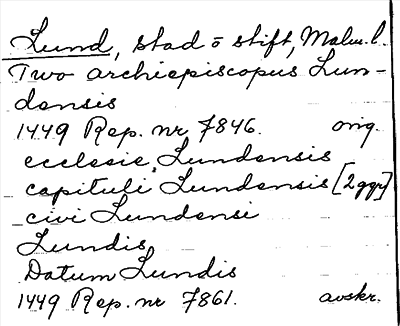 Lund, stad o stift, Malm. l.
Tuvo archiepiscopus Lun-
densis
1449 Rep. nr 7846. orig.
ecclesie Lundensis
capituli Lundensis [2 ggr]
civi Lundensi
Lundis
Datum Lundis
1449 Rep. nr 7861. avskr.